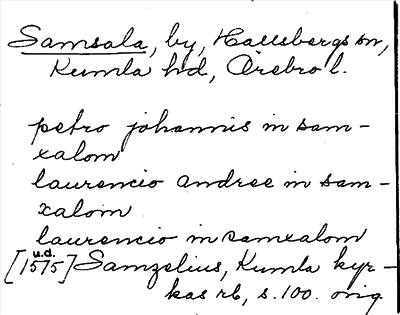 Samsala, by, Hallsbergs sn,
Kumla hd, Örebro l.
petro johannis in sam-
xalom
laurencio andree in sam-
xalom
laurencio in samxalom
u.d.
[1575] Samzelius, Kumla kyr-
kas rb, s. 100. orig